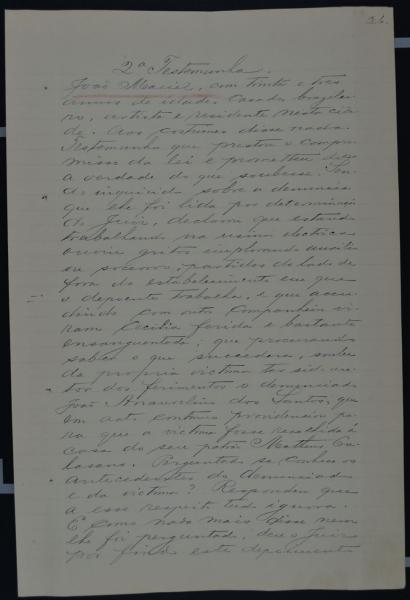 26.
2ª Testemunha.
João Maciel, com trinta e tres
annos de idade, casado, brazilei-
ro, artista e residente nesta cida-
de. Aos costumes disse nada.
Testemunha que prestou o compro-
misso da lei e prometteu dizer
a verdade do que soubesse. Sen-
do inquirida sobre a denuncia
que lhe foi lida por determinação
do Juiz, declarou que estando
trabalhando na usina electrica
ouviu gritos implorando auxilio
ou soccorro, partidos do lado de
fora do estabelecimento em que
o depoente trabalha, e que acu-
dindo com outro companheiro vi-
ram Cecilia ferida e bastante
ensanguentada; que procurando
saber o que succedera, soube
da propria victima ter sido au-
tor dos ferimentos o denunciado
João dos Santos, que
em acto continuo providenciou pa-
ra que a victima fosse recolhida á
casa do seu patrão Matheus Ca-
lasans. Perguntado se conhece os
antecedentes do denunciado
e da victima? Respondeu que
a esse respeito tudo ignora.
E como nada mais disse nem
lhe foi perguntado, deu o Juiz
por findo este depoimento